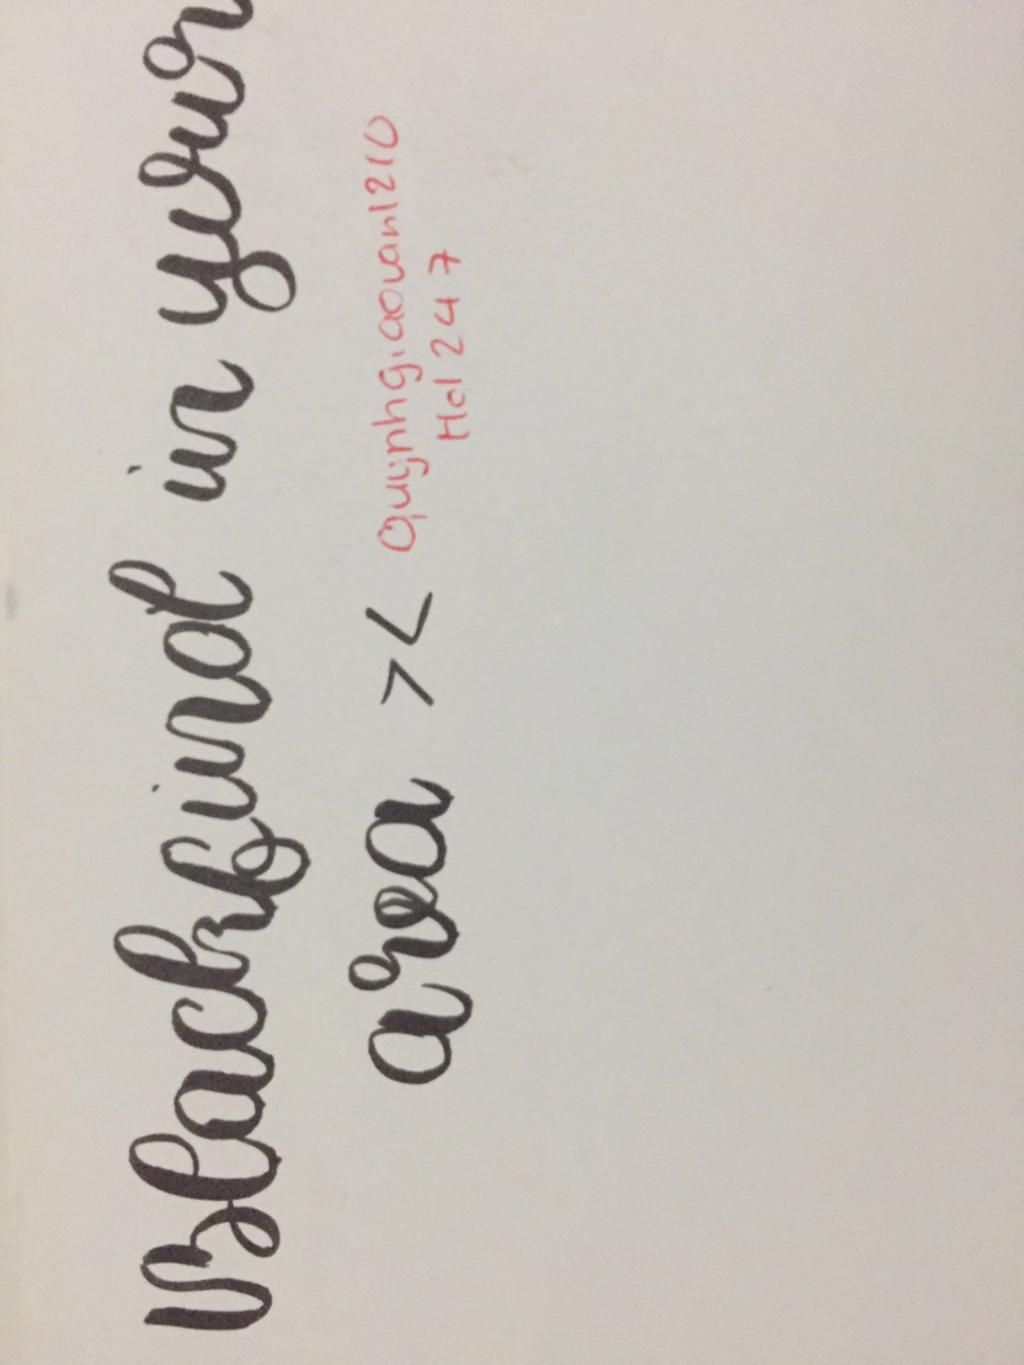 Blackpind in your
area ><
Quynhgiaovan1210
Hd 247